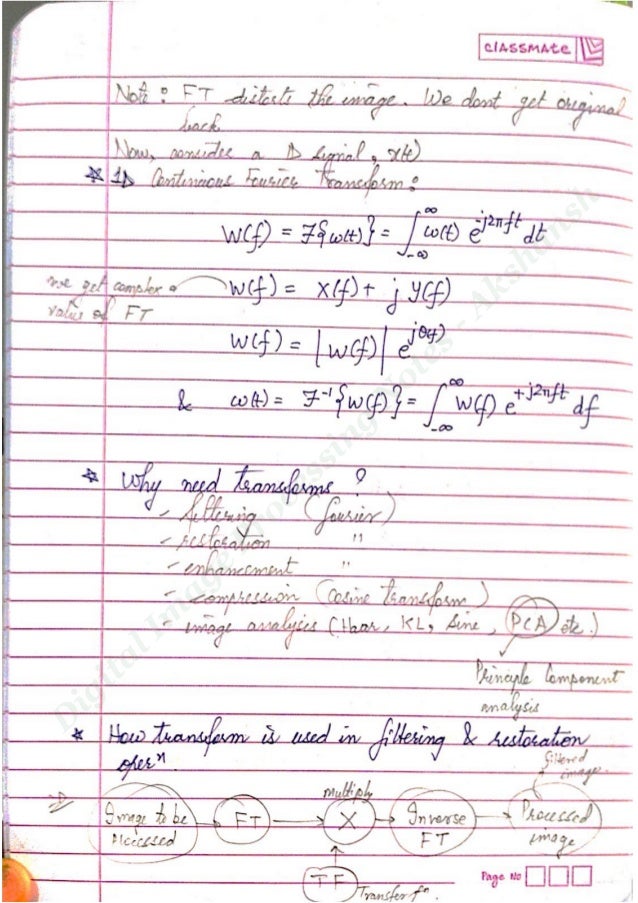 classmate
Note: FT distorts the image. We dont get original
back
Now, consider a 1D signal, x(t)
* 1D Continuous Fourier Transform:
W(f) = F{ω(t)} = ∫_{-∞}^{∞} ω(t) e^{-j2πft} dt
we get complex
value of FT
W(f) = X(f) + j Y(f)
W(f) = |W(f)| e^{jθ(f)}
& ω(t) = F⁻¹{W(f)} = ∫_{-∞}^{∞} W(f) e^{+j2πft} df
* Why need transforms?
- filtering (fourier)
- restoration "
- enhancment "
- compression (Cosine transform)
- image analysis (Haar, KL, Sine, PCA etc.)
Principle Component
analysis
* How transform is used in filtering & restoration
operⁿ.
filtered
image
multiply
Image to be
processed → FT → X → Inverse
FT → Processed
image
TF Transfer fⁿ.
Page No
Digital Image Processing Notes - Akshansh